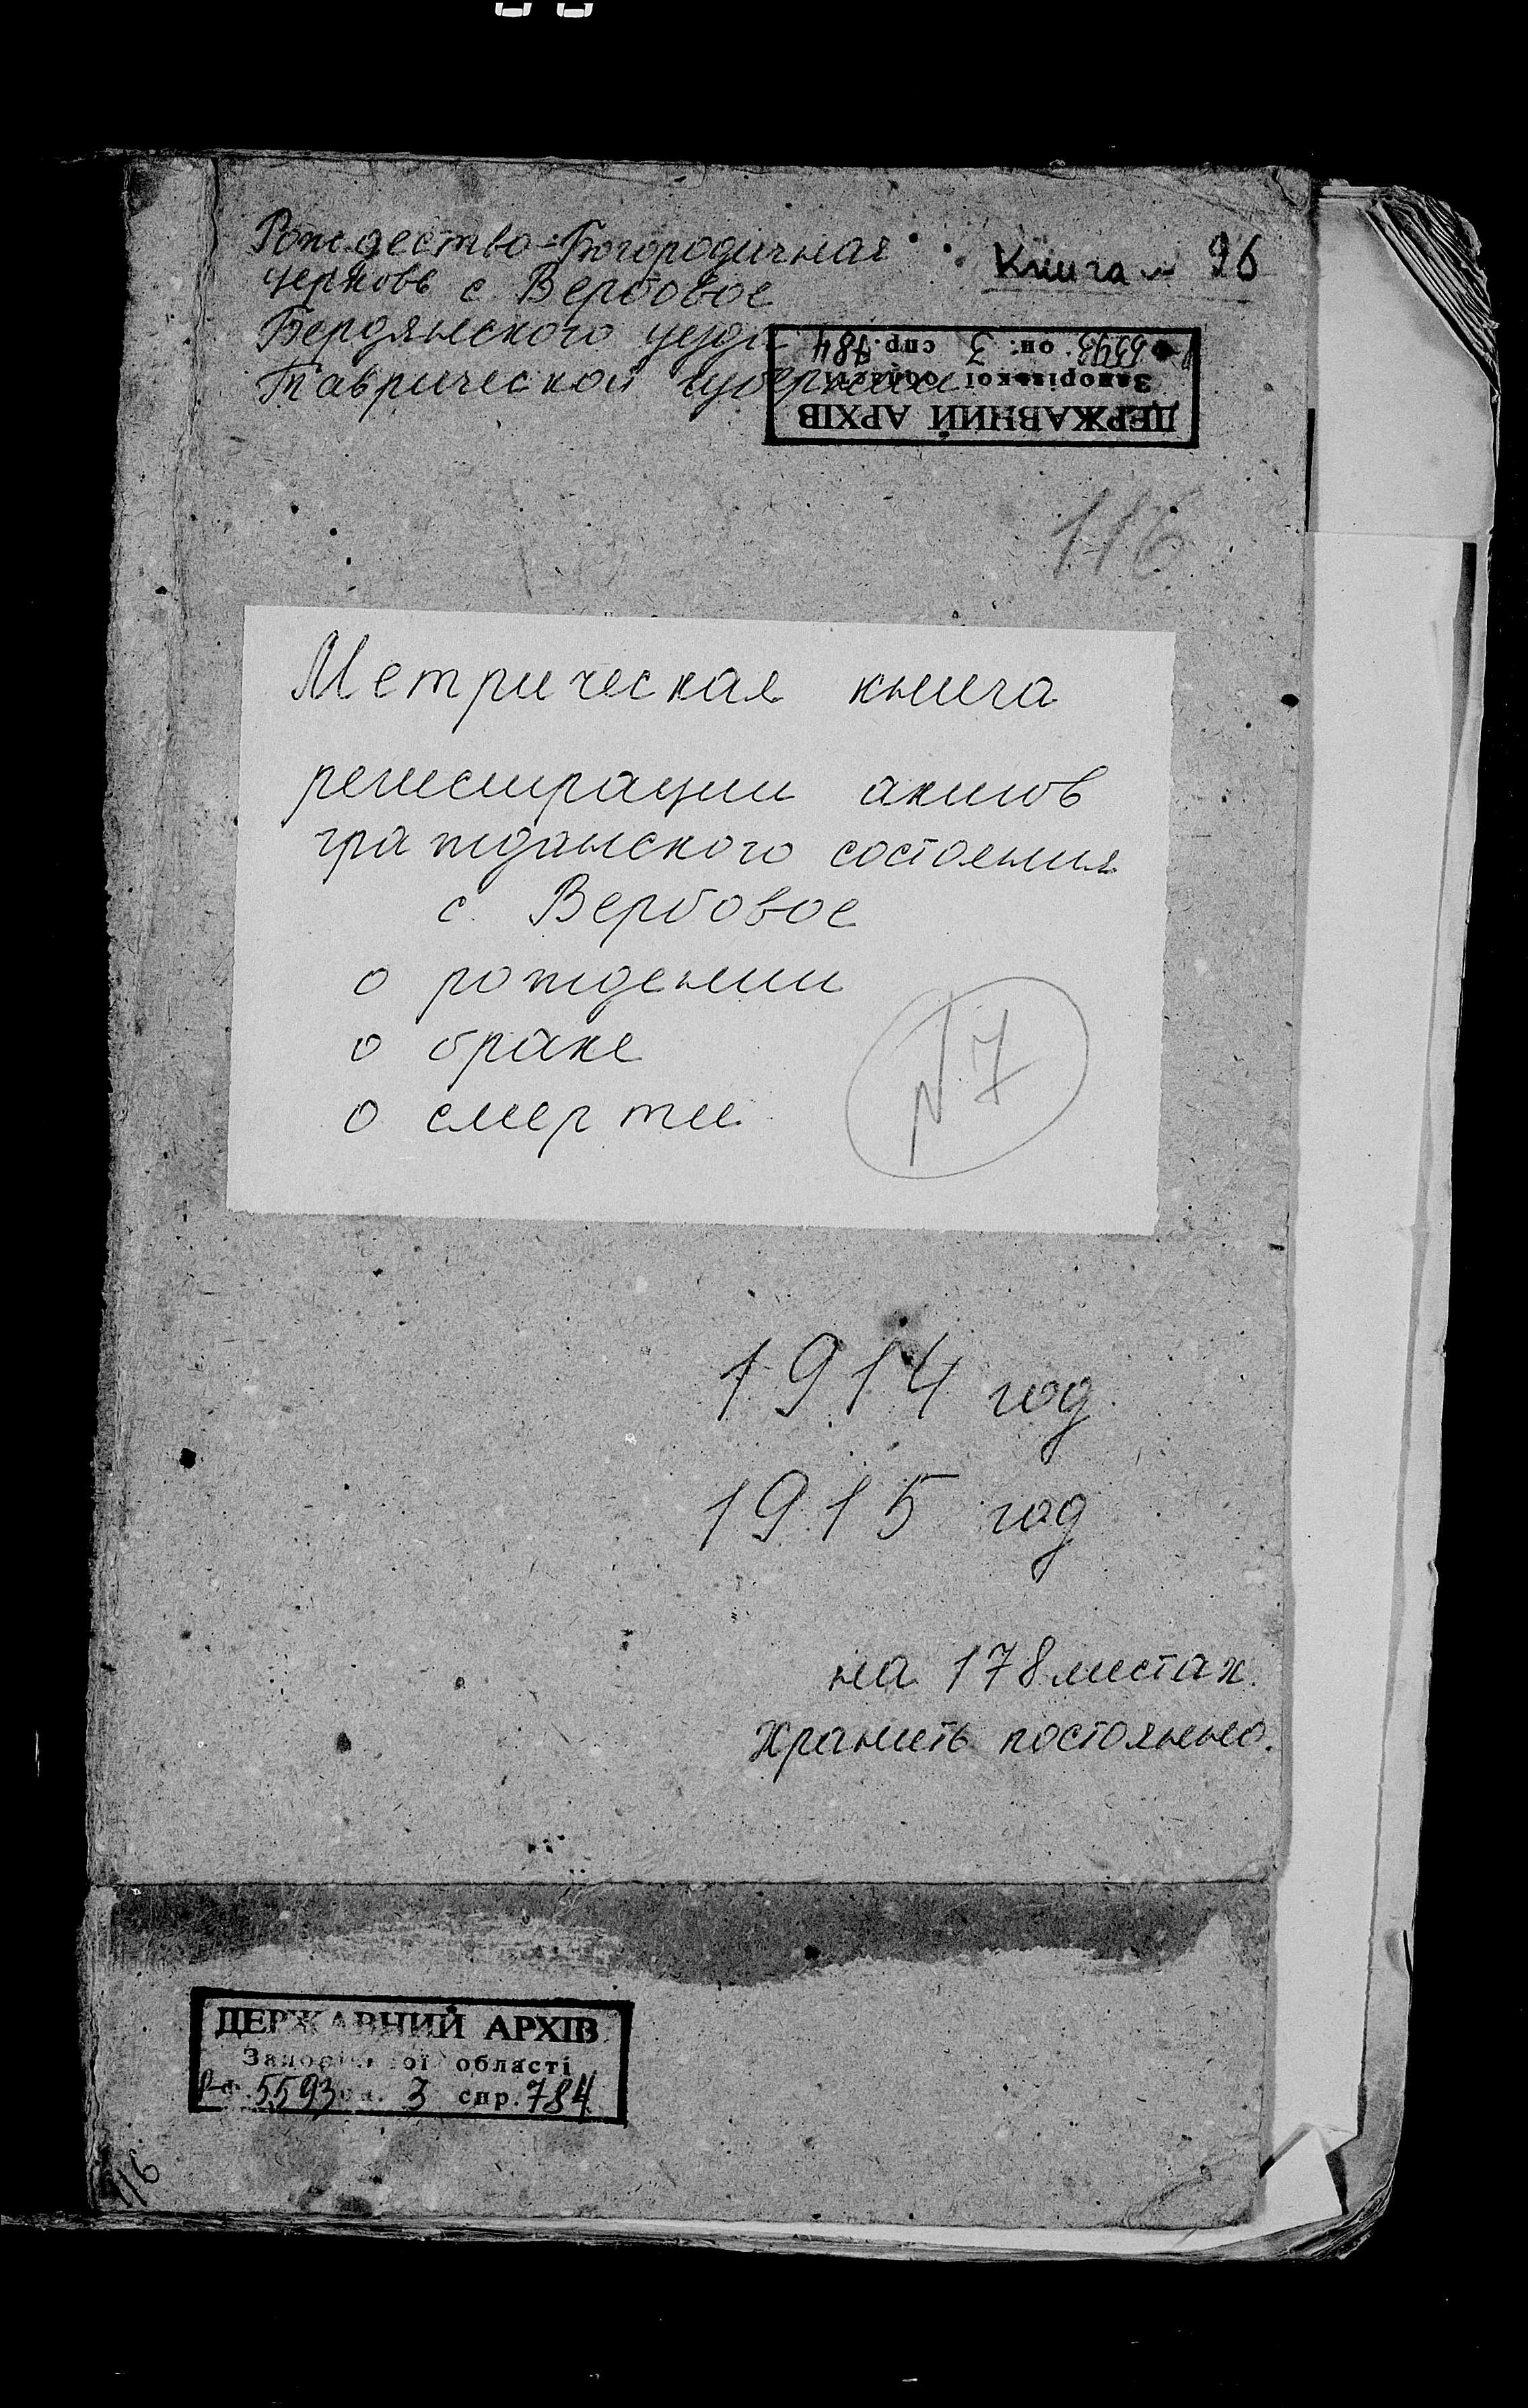 Рождество-Богородичная
церковь с. Вербовое
Бердянского уезда
Таврической губернии
Книга № 96
ДЕРЖАВНИЙ АРХІВ
Запорізької області
ф. 5593 оп. 3 спр. 784
116
Метрическая книга
регистрации актов
гражданского состояния
с. Вербовое
о рождении
о браке
о смерти
N 7
1914 год
1915 год
на 178 листах.
Хранить постоянно.
ДЕРЖАВНИЙ АРХІВ
Запорізької області
Р-ф. 5593 оп. 3 спр. 784
116